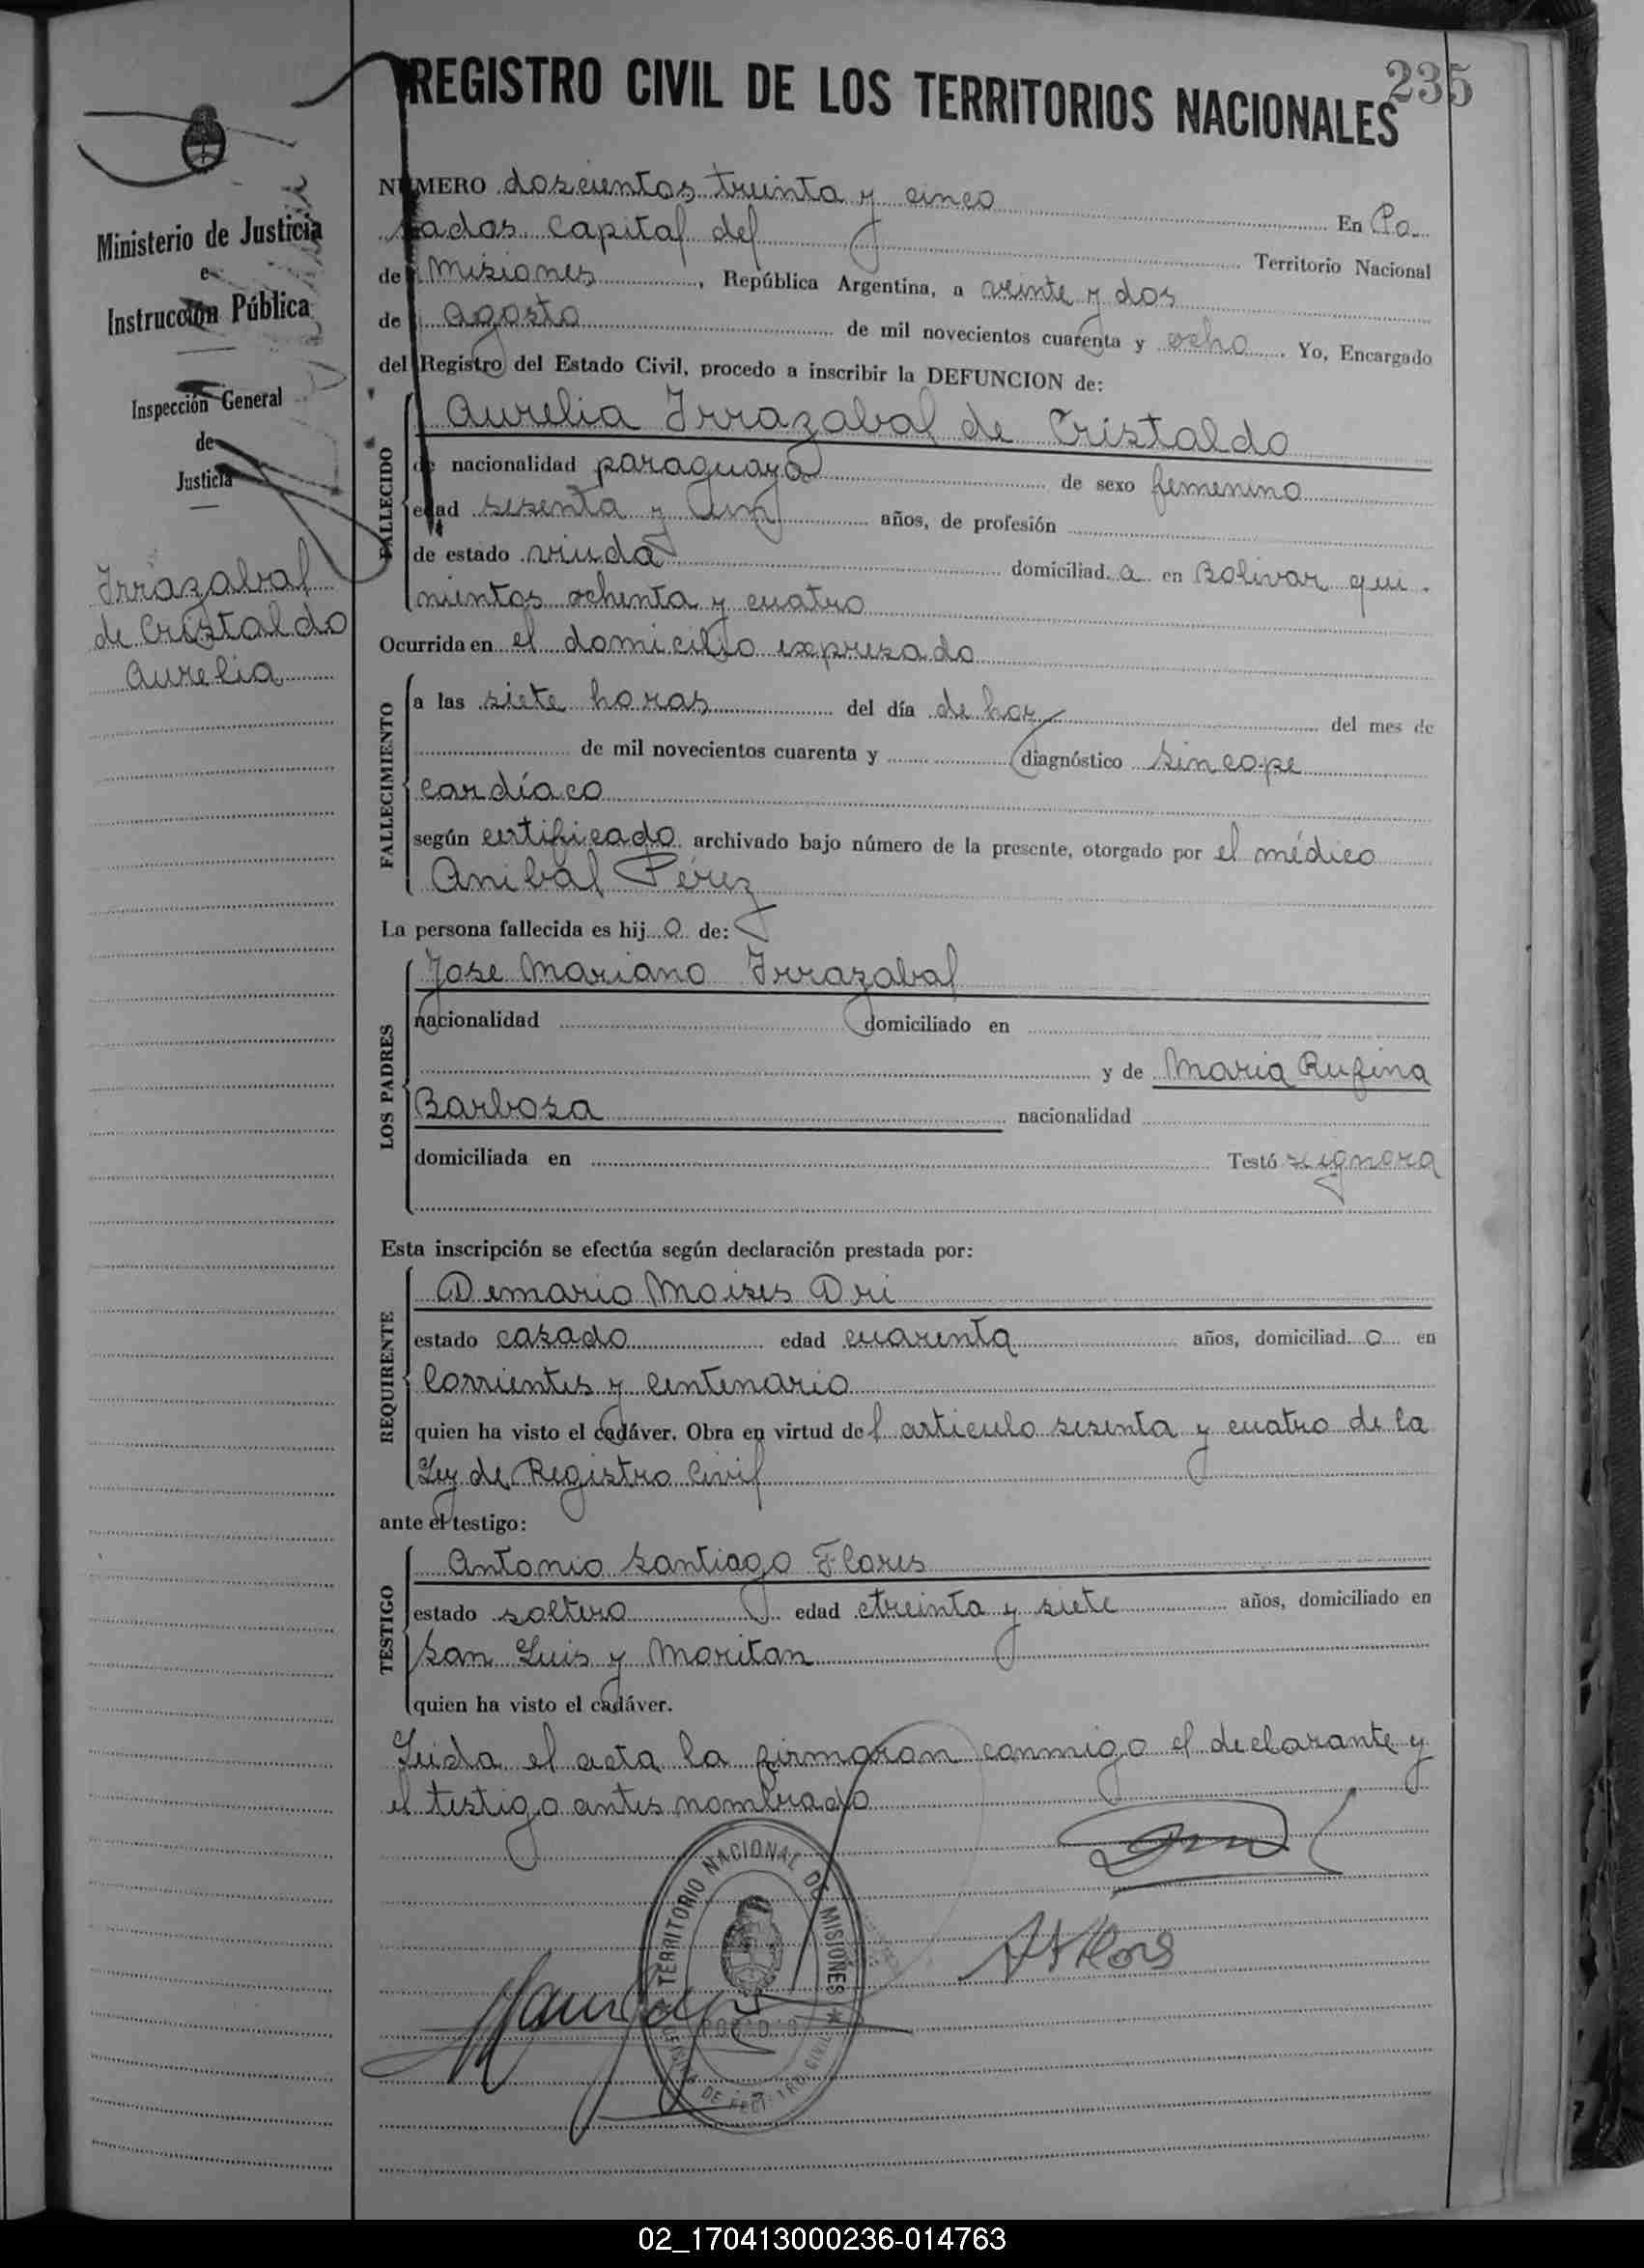 REGISTRO CIVIL DE LOS TERRITORIOS NACIONALES
235
Ministerio de Justicia
e
Instrucción Pública
Inspección General
de
Justicia
Irrazabal
de Cristaldo
Aurelia
NUMERO doscientos treinta y cinco En Po-
sadas capital del Territorio Nacional
de Misiones, República Argentina, a veinte y dos
de agosto de mil novecientos cuarenta y ocho. Yo, Encargado
del Registro del Estado Civil, procedo a inscribir la DEFUNCION de:
FALLECIDO
Aurelia Irrazabal de Cristaldo
de nacionalidad paraguaya de sexo femenino
edad sesenta y un años, de profesión
de estado viuda domiciliad a en Bolivar qui-
nientos ochenta y cuatro
Ocurrida en el domicilio expresado
FALLECIMIENTO
a las siete horas del día de hoy del mes de
de mil novecientos cuarenta y diagnóstico sincope
cardíaco
según certificado archivado bajo número de la presente, otorgado por el médico
Anibal Pérez
La persona fallecida es hij a de:
LOS PADRES
Jose Mariano Irrazabal
nacionalidad domiciliado en
y de Maria Rufina
Barbosa nacionalidad
domiciliada en Testó se ignora
Esta inscripción se efectúa según declaración prestada por:
REQUIRENTE
Demario Moises Dri
estado casado edad cuarenta años, domiciliad o en
Corrientes y Centenario
quien ha visto el cadáver. Obra en virtud del articulo sesenta y cuatro de la
Ley de Registro Civil
ante el testigo:
TESTIGO
Antonio Santiago Flores
estado soltero edad treinta y siete años, domiciliado en
San Luis y Moritan
quien ha visto el cadáver.
Leida el acta la firmaron conmigo el declarante y
el testigo antes nombrado
TERRITORIO NACIONAL DE MISIONES
02_170413000236-014763